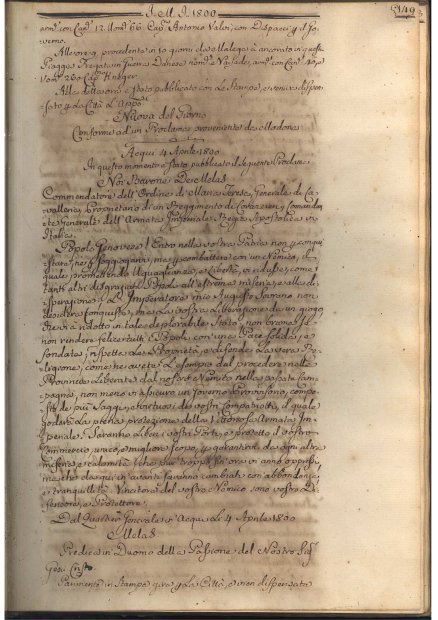 I. M. I. 1800
armo con Cani 12. Uomi 66. Capo Antonio Valvi, con Dispacci p il Go-
verno.
Alle ore 9. procedente in 10 giorni da Malega à ancorato in questa
Piagga Fregata in Guerra Danese noma
Uomi 260 Capo
Alle della sera è stato pubblicato con le Stampe, e veniva dispen-
sato p la Città L'
Nuova del Giorno
Conforme ad un Proclama proveniente da Modena
Acqui 4 Aprile 1800
In questo momento è stato pubblicato il seguente Proclama
Noi Barone De Melas
Commendatore dell'Ordine di Maria Teresa, Generale di Ca-
valleria, Proprietario di un Reggimento di Corazzieri, e Comandan-
te Generale dell'Armata Imperiale Regia Apostolica in
Italia.
Popolo Genovese! Entro nella vostra Patria non p conqui-
starla, nè p soggiogarvi, ma p combattere con un Nemico, il
quale promettendo Uguaglianza, e Libertà, vi ridusse, come
tanti altri disgraziati Popoli all'estrema miseria, e alla di-
sperazione. L'Imperatore mio Augusto Sovrano non
desidera conquiste, ma la vostra Liberazione da un giogo
che vi à ridotto in tale deplorabile Stato, non brama se
non rendere felici tutti i Popoli con una Pace solida, e
fondata; rispetta la Proprietà, e difende la vera Re-
ligione, come ne avete l'esempio dal procedere nelle
Provincie Liberate dal nostro Nemico nella passata Cam-
pagna, non meno vi assicuro un Governo Provvisorio, compo-
sto de' più Saggi, e virtuosi de' vostri Compatriotti, il quale
goderà la piena protezione della Vittoriosa Armata Im-
periale. Saranno Liberi i vostri Porti, e protetto il vostro
Commercio, unico, e migliore scopo, p garantirvi da ogni altra
miseria, e calamità, che pur troppo fin ora vi anno oppressi,
ma, che da qui in avanti saranno cambiate con abbondanza,
e tranquillità. Vincitori del vostro Nemico sono vostri Di-
fensori, e Protettori.
Dal Quartier Generale in Acqui Li 4 Aprile 1800
Melas
Predica in Duomo della Passione del Nostro Sigr
Gesù Cristo
Parimente in Stampa gira p la Città, e vien dispensato